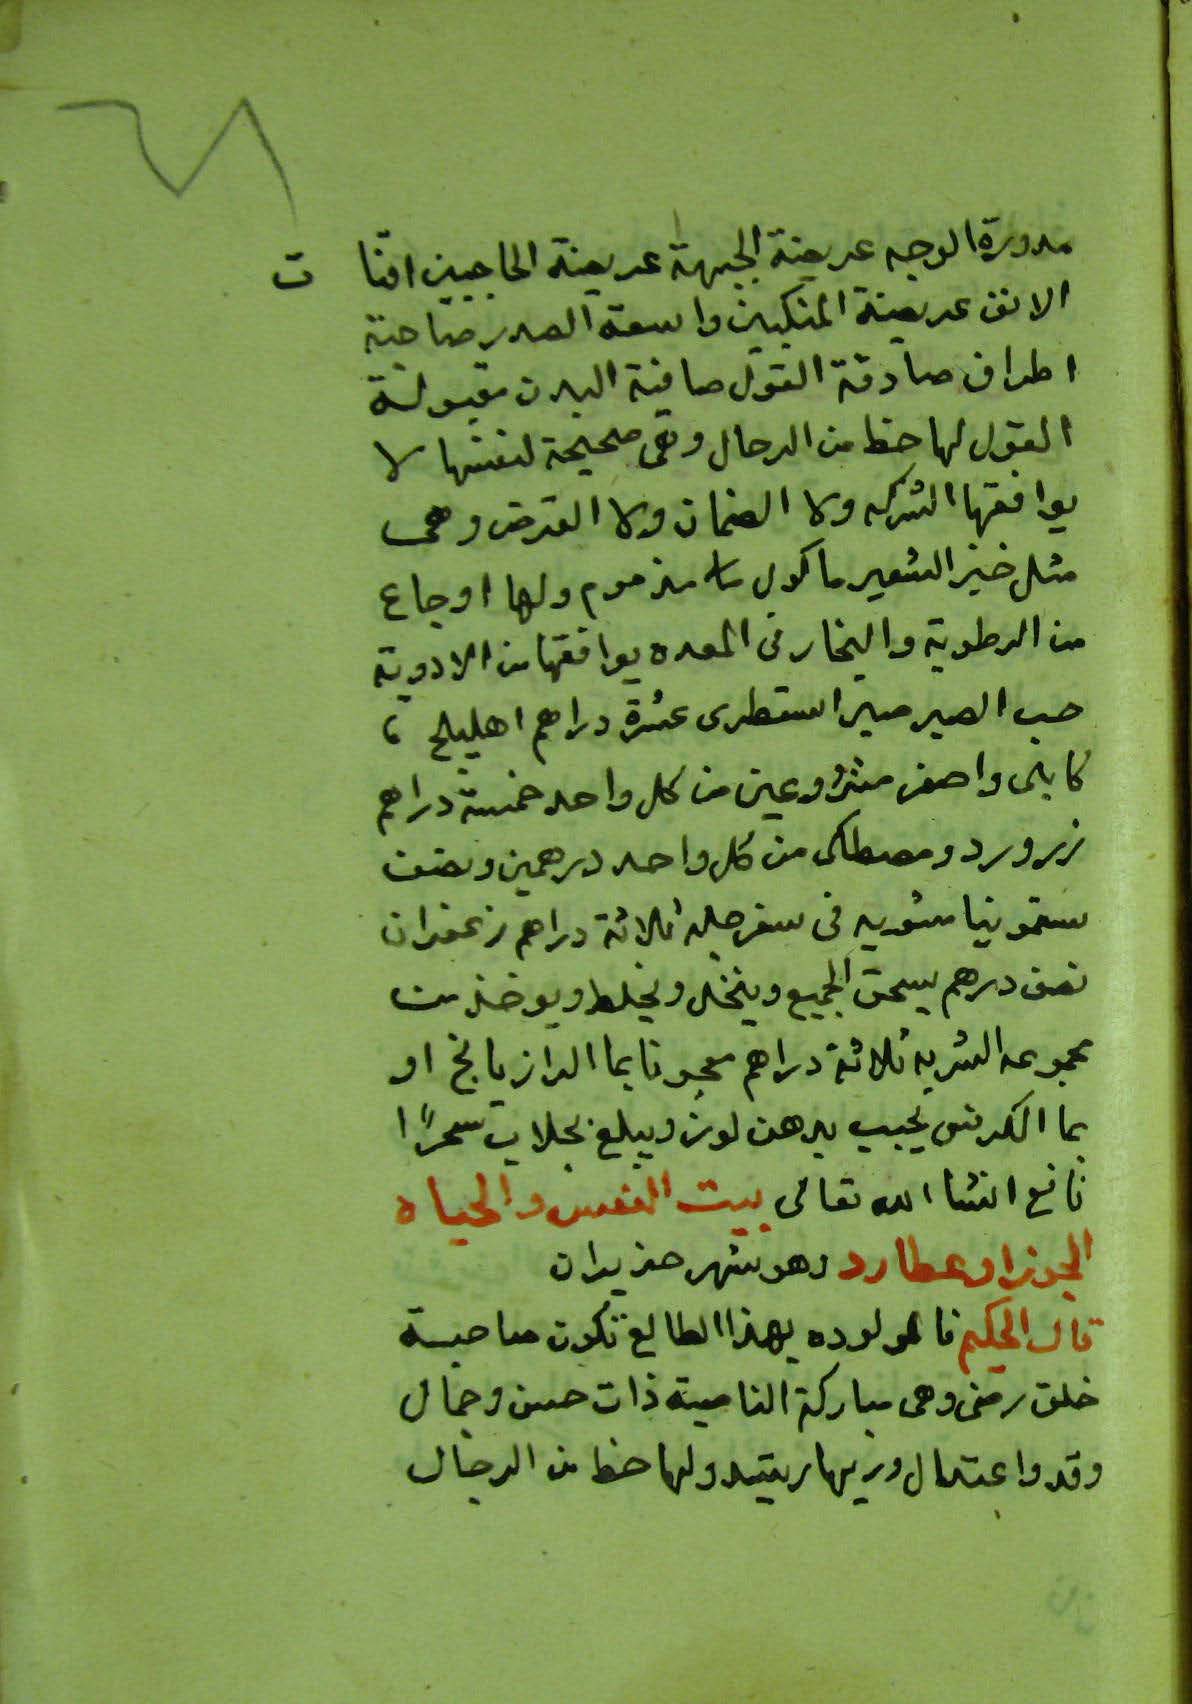 مدورة الوجه عريضة الجبهة عريضة الحاجبين اقنا ت
الانف عريضة المنكبين واسعة الصدر صاحبة
اطراف صادقة القول صافية البدن مقبولة
القول لها حظ من الرجال وهي صحيحة لنفسها لا
يوافقها الشركه ولا الضمان ولا القرض وهي
مثل خبز الشعير ماكول مذموم ولها اوجاع
من الرطوبة والبخار في المعده يوافقها من الادوية
حب الصبر صبر اسقطرى عشرة دراهم اهليلج
كابلى واصفر منزوعين من كل واحد خمسة دراهم
زر ورد ومصطكى من كل واحد درهمين ونصف
سقمونيا مشويه في سفرجله ثلاثة دراهم زعفران
نصف درهم يسحق الجميع وينخل ويخلط ويوخذ من
مجموعه الشربه ثلاثة دراهم معجونا بما الرازيانج او
بما الكرفس يحبب بدهن لوز ويبلع بجلاب سحرًا
نافع انشا الله تعالى بيت النفس والحياه
الجوزا وعطارد وهو شهر حزيران
قال الحكيم فالمولوده بهذا الطالع تكون صاحبة
خلق رضى وهى مباركة الناصية ذات حسن وجمال
وقد واعتدال ولها حظ من الرجال